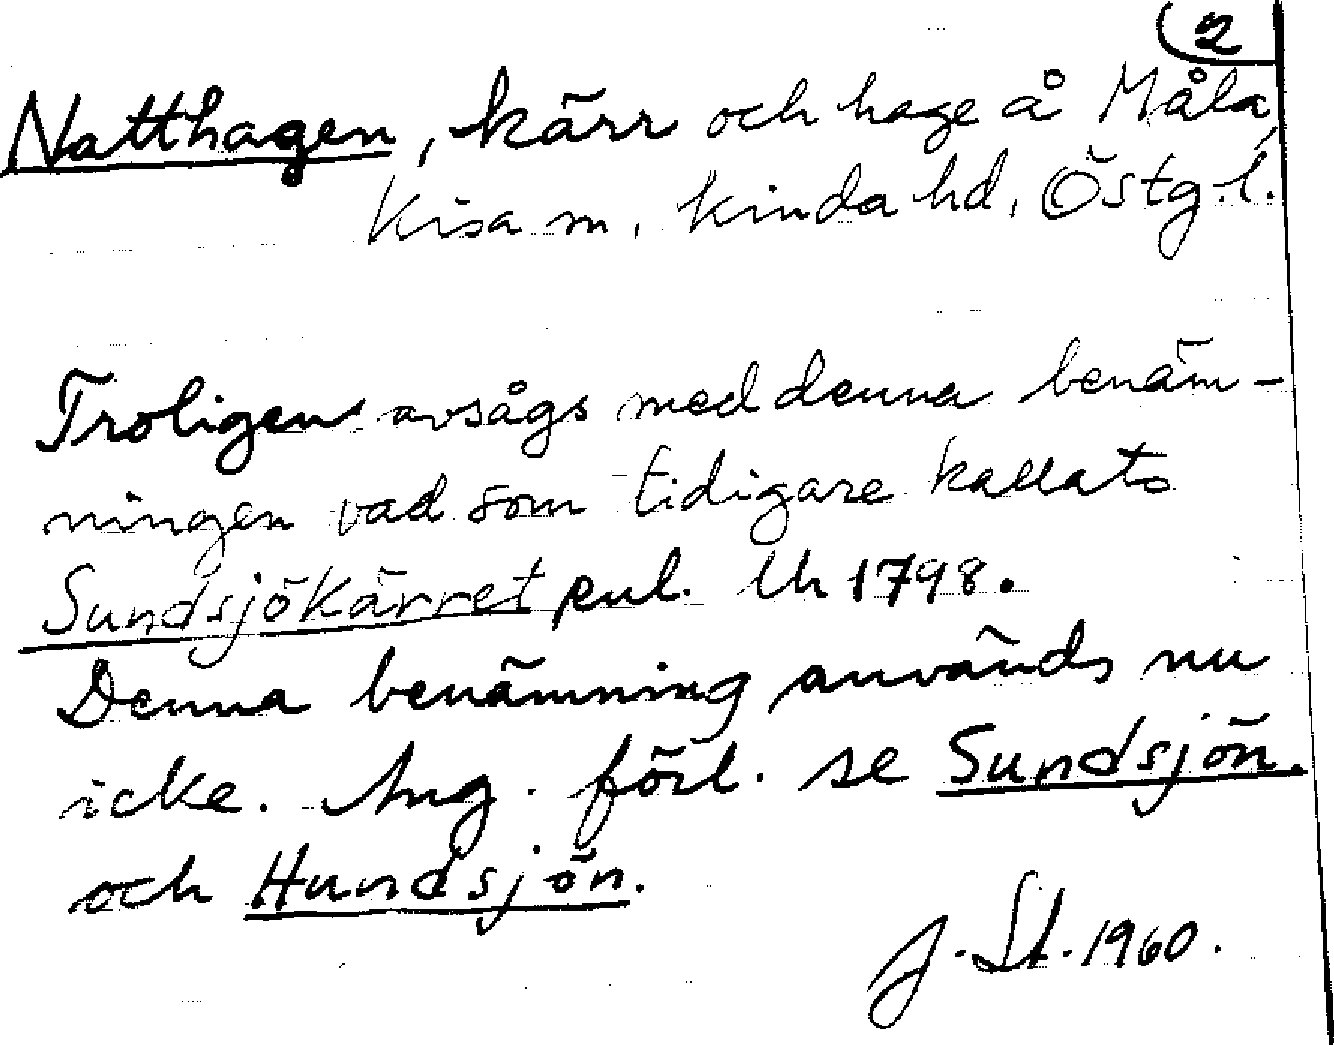 2
Natthagen, kärr och hage å Måla,
Kisa sn, Kinda hd, Östg. l.
Troligen avsågs med denna benäm-
ningen vad som tidigare kallats
Sundsjökärret enl. Uh 1798.
Denna benämning används nu
icke. Ang. förl. se Sundsjön.
och Hundsjön.
J. St. 1960.